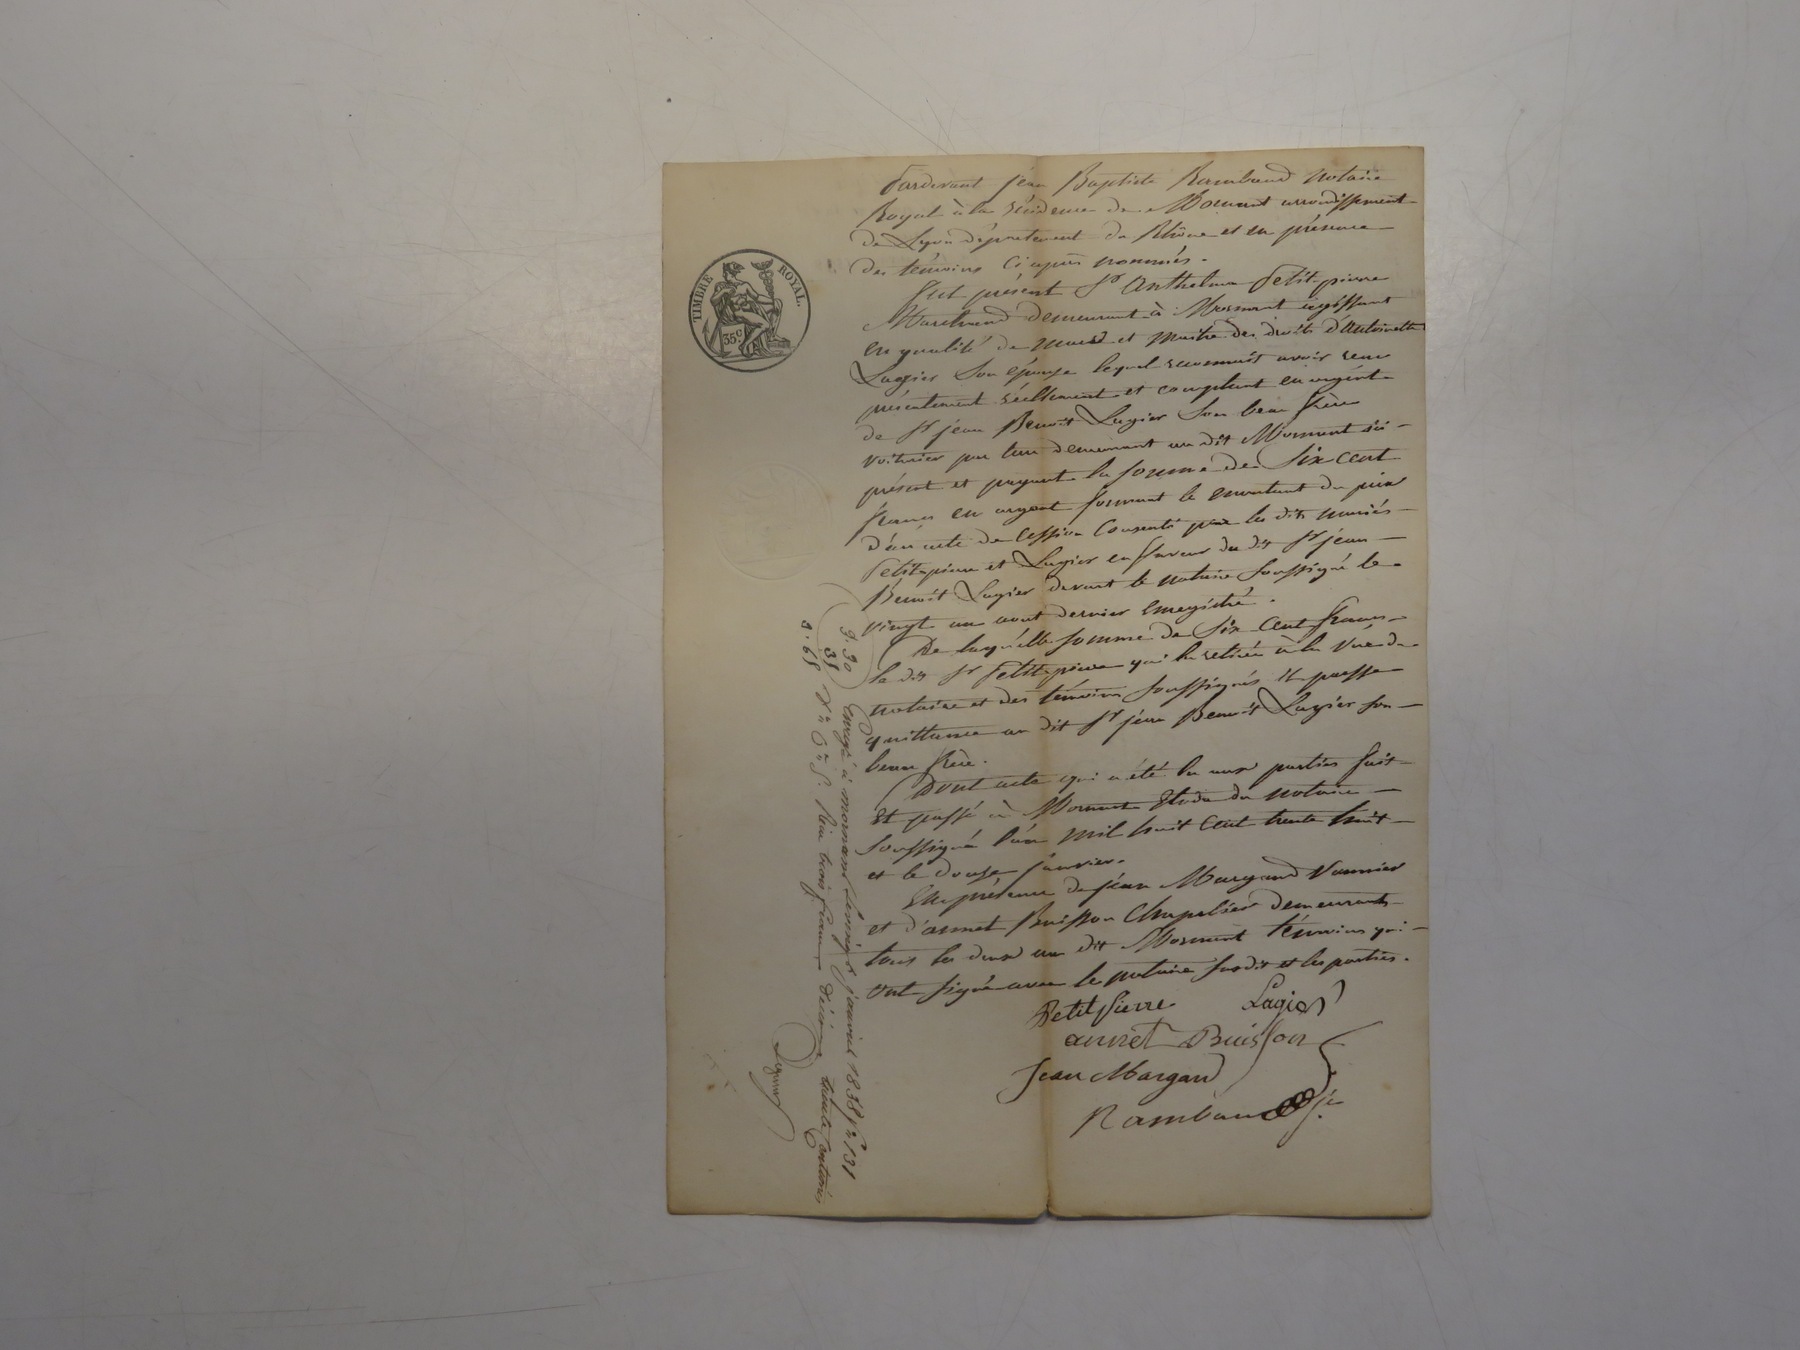 TIMBRE ROYAL.
35c
Pardevant jean Baptiste Rambaud notaire
Royal à la résidence de Mornant arrondissement
de Lyon département du Rhône et en présence
des témoins ci après nommés.
fut présent Sr Anthelme Petitpierre
Marchand demeurant à Mornant agissant
en qualité de mari et maitre des droits d'Antoinette
Lagier son épouse lequel reconnait avoir reçu
présentement réellement et comptant en argent
de Sr jean Benoit Lagier son beau frère
voiturier par terre demeurant au dit Mornant ici
présent et payant la somme de Six cent
francs en argent formant le montant du prix
d'un acte de Cession consenti par les dits mariés
Petitpierre et Lagier en faveur du dit Sr jean
Benoit Lagier devant le notaire soussigné le
vingt un aout dernier enregistré.
De laquelle somme de Six Cent francs
le dit Sr Petitpierre qui l'a retirée à la vue du
notaire et des témoins soussignés il passe
quittance au dit Sr jean Benoit Lagier son
beau frère.
Dont acte qui a été lu aux parties fait
et passé à Mornant Etude du notaire
soussigné l'an mil huit cent trente huit
et le douze janvier.
En présence de jean Margand vannier
et d'annet Buisson Chapelier demeurants
tous les deux au dit Mornant témoins qui
ont signé avec le notaire susdit et les parties.
Petitpierre Lagier
annet Buisson
Jean Margand
Rambaud
3.30
35
3.65
Enregé à mornant le janvier 1838 fo 131
Vo Co Reçu trois francs décime trente centimes